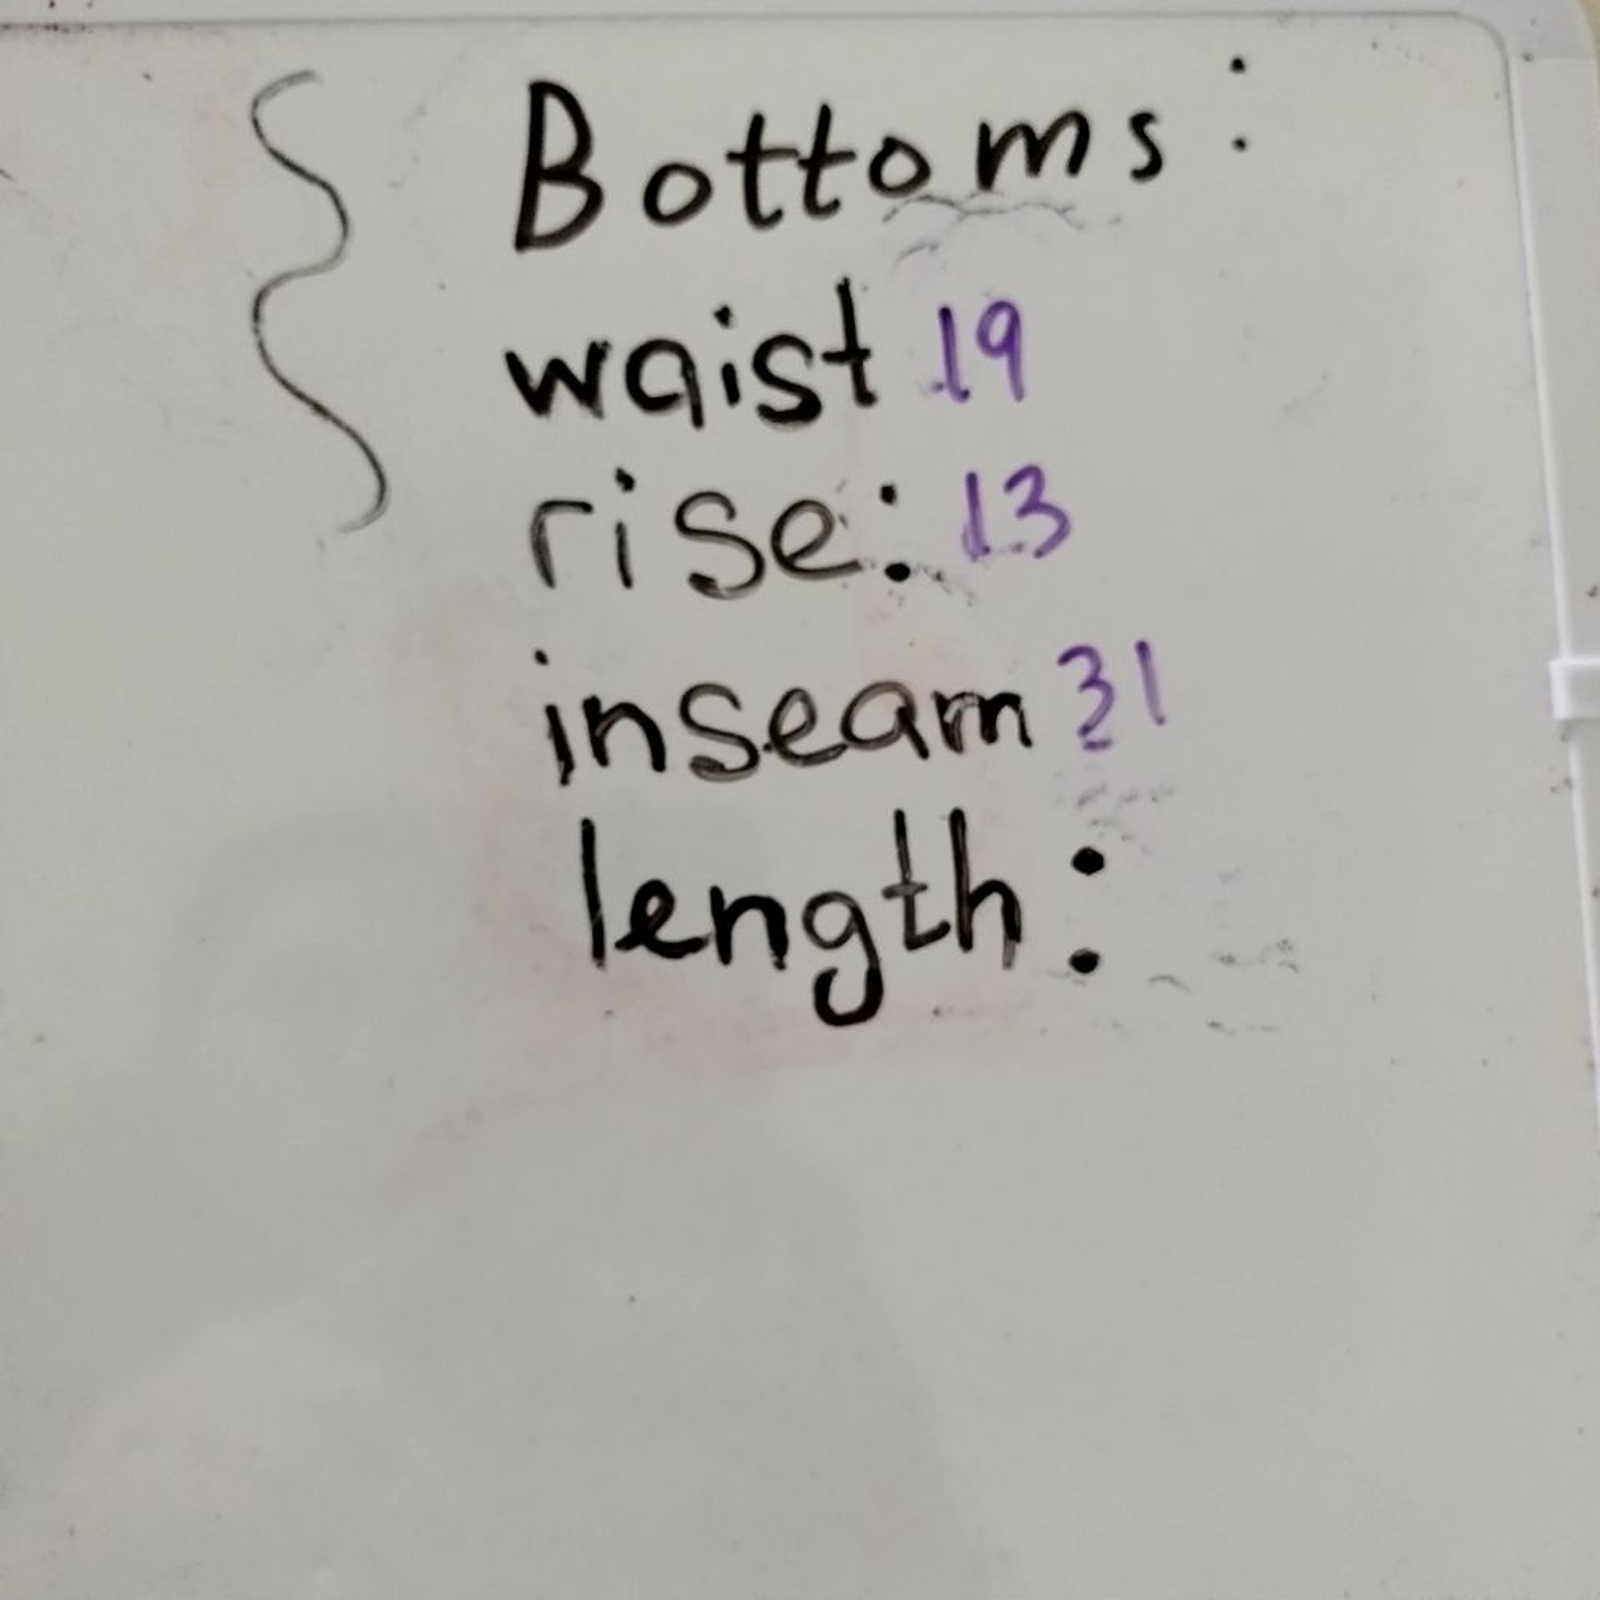 Bottoms:
waist 19
rise: 13
inseam 31
length: